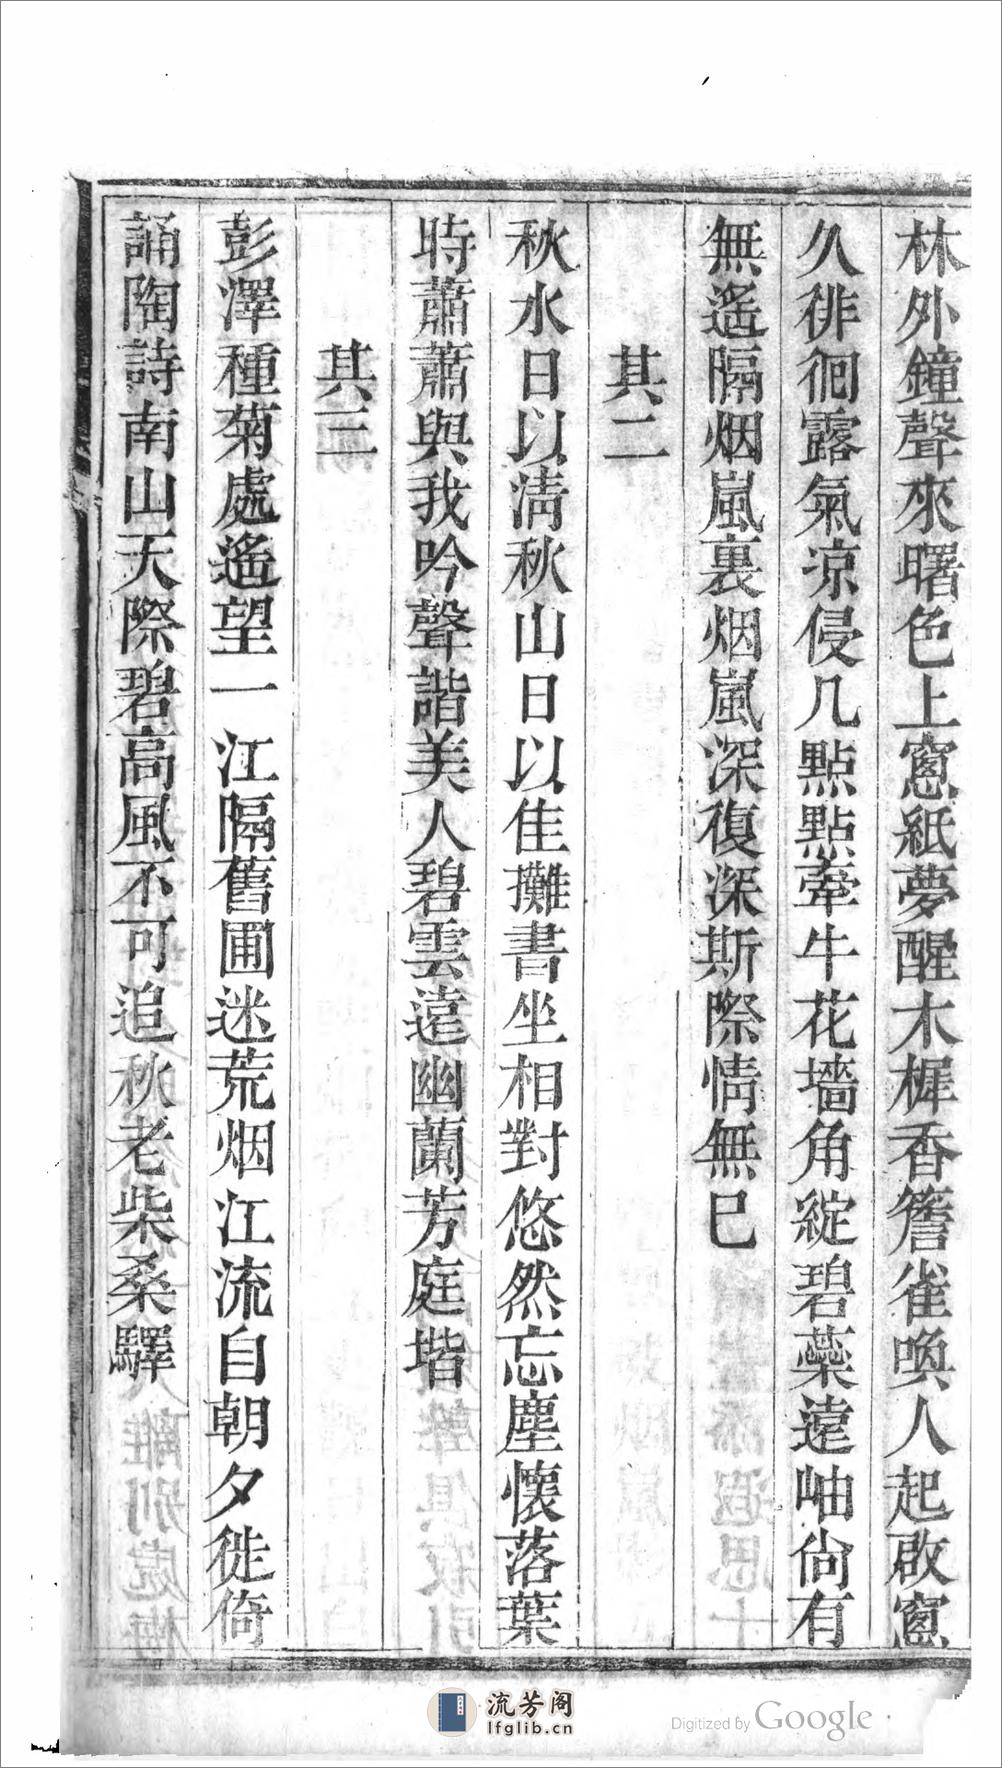 林外鐘聲來曙色上窻紙夢醒木樨香簷雀喚人起啟窻
久徘徊露氣凉侵几點點牽牛花墻角綻碧蘂遠岫尙有
無遙隔烟嵐裏烟嵐深復深斯際情無已
其二
秋水日以清秋山日以佳攤書坐相對悠然忘塵懷落葉
時蕭蕭與我吟聲諧美人碧雲遠幽蘭芳庭堦
其三
彭澤種菊處遙望一江隔舊圃迷荒烟江流自朝夕徙倚
誦陶詩南山天際碧高風不可追秋老柴桑驛
流芳阁
lfglib.cn
Digitized by Google